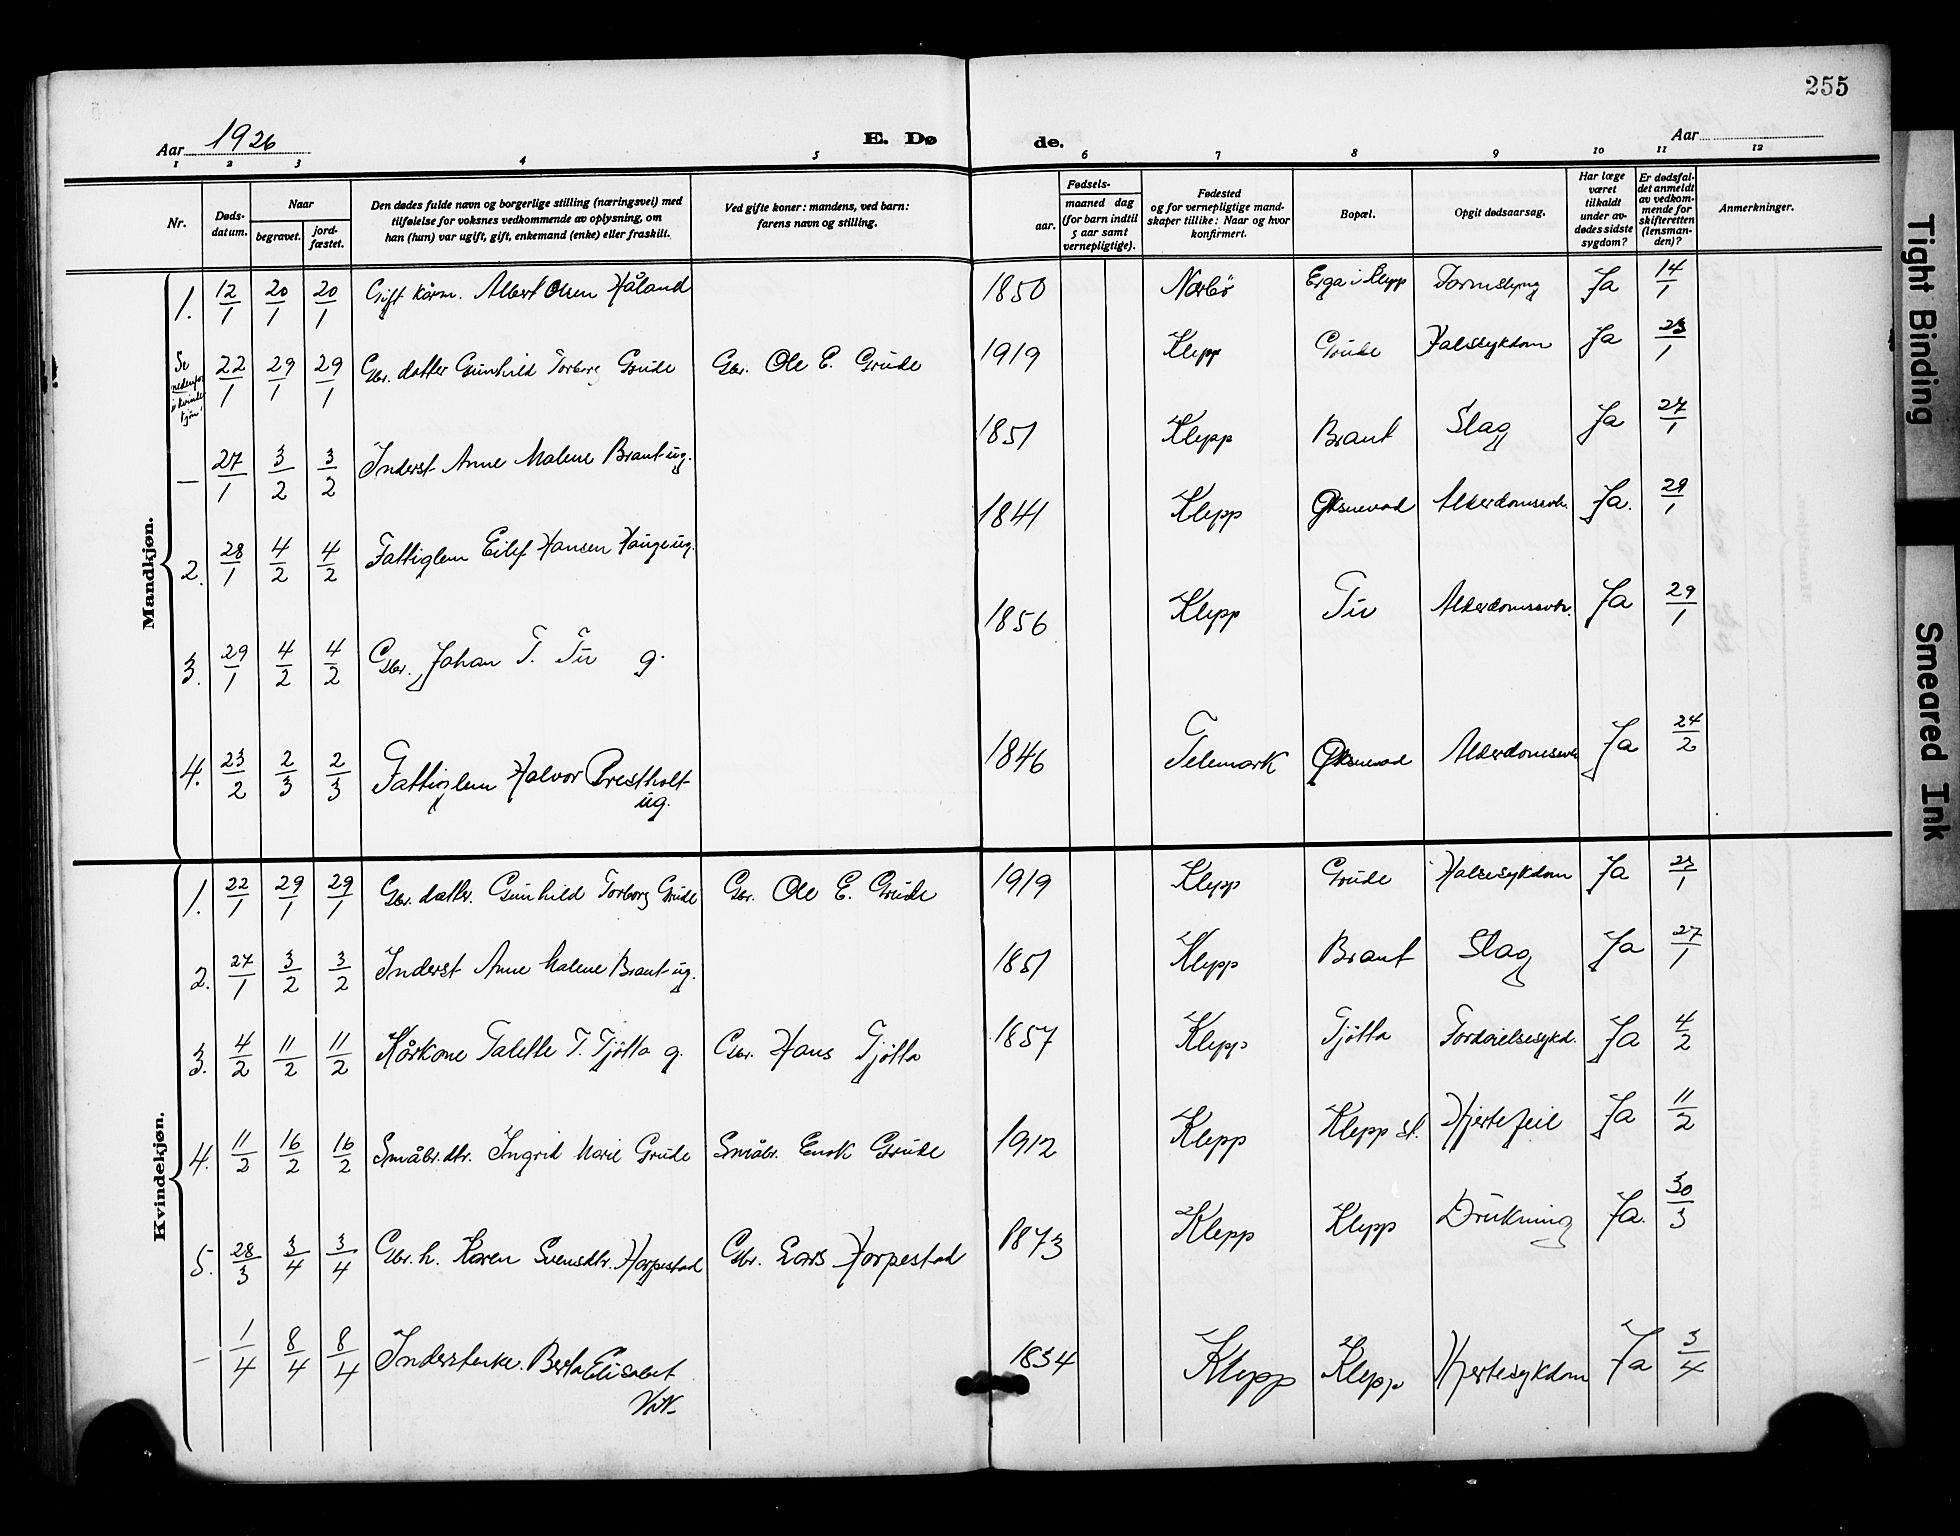 255
Aar 1926
E. Dø
de.
Aar
1 2 3 4 5
6 7 8 9 10 11 12
Nr.
Døds-
datum.
Naar
begravet.
jord-
fæstet.
Den dødes fulde navn og borgerlige stilling (næringsvei) med
tilføielse for voksnes vedkommende av oplysning, om
han (hun) var ugift, gift, enkemand (enke) eller fraskilt.
Ved gifte koner: mandens, ved barn:
farens navn og stilling.
aar.
Fødsels-
maaned dag
(for barn indtil
5 aar samt
vernepligtige).
Fødested
og for vernepligtige mand-
skaper tillike: Naar og hvor
konfirmert.
Bopæl.
Opgit dødsaarsag.
Har læge
været
tilkaldt
under av-
dødes sidste
sygdom?
Er dødsfal-
det anmeldt
av vedkom-
mende for
skifteretten
(lensman-
den)?
Anmerkninger.
Mandkjøn.
1. 12/1 20/1 20/1 Gift kårm. Albert Olsen Håland 1850 Nærbö Erga i Klepp Tarmslyng Ja 14/1
Se nedenfor i kvindekjøn! 22/1 29/1 29/1 Gbr. datter Gunhild Torborg Grude Gbr. Ole E. Grude 1919 Klepp Grude Halssykdom Ja 23/1
— 27/1 3/2 3/2 Inderst Anne Malene Braut ug. 1851 Klepp Braut Slag Ja 27/1
2. 28/1 4/2 4/2 Fattiglem Eilef Hansen Hauge ug. 1841 Klepp Øksnevad Alderdomssvk. Ja. 29/1
3. 29/1 4/2 4/2 Gbr. Johan T. Tu g. 1856 Klepp Tu Alderdomssvk. Ja 29/1
4. 23/2 2/3 2/3 Fattiglem Halvor Prestholt
ug. 1846 Telemark Øksnevad Alderdomssvk Ja 24/2
Kvindekjøn.
1. 22/1 29/1 29/1 Gbr. datter. Gunhild Torborg Grude Gbr. Ole E. Grude 1919 Klepp Grude Halsesykdom Ja 23/1
2. 27/1 3/2 3/2 Inderst Anne Malene Braut ug. 1851 Klepp Braut Slag Ja 27/1
3. 4/2 11/2 11/2 Kårkone Talette T. Tjötta g. Gbr. Hans Tjötta 1857 Klepp Tjötta Fordøielsesykd. Ja 4/2
4. 11/2 16/2 16/2 Småbr.dtr. Ingrid Marie Grude Småbr. Enok Grude 1912 Klepp Klepp st. Hjertefeil Ja 11/2
5. 28/3 3/4 3/4 Gbr. h. Karen Svensdtr. Horpestad Gbr. Lars Horpestad 1873 Klepp Klepp Drukning Ja. 30/3
— 1/4 8/4 8/4 Inderstenke. Berta Elisabet 1834 Klepp Klepp Hjertesykdom Ja 3/4
Tight Binding
Smeared Ink